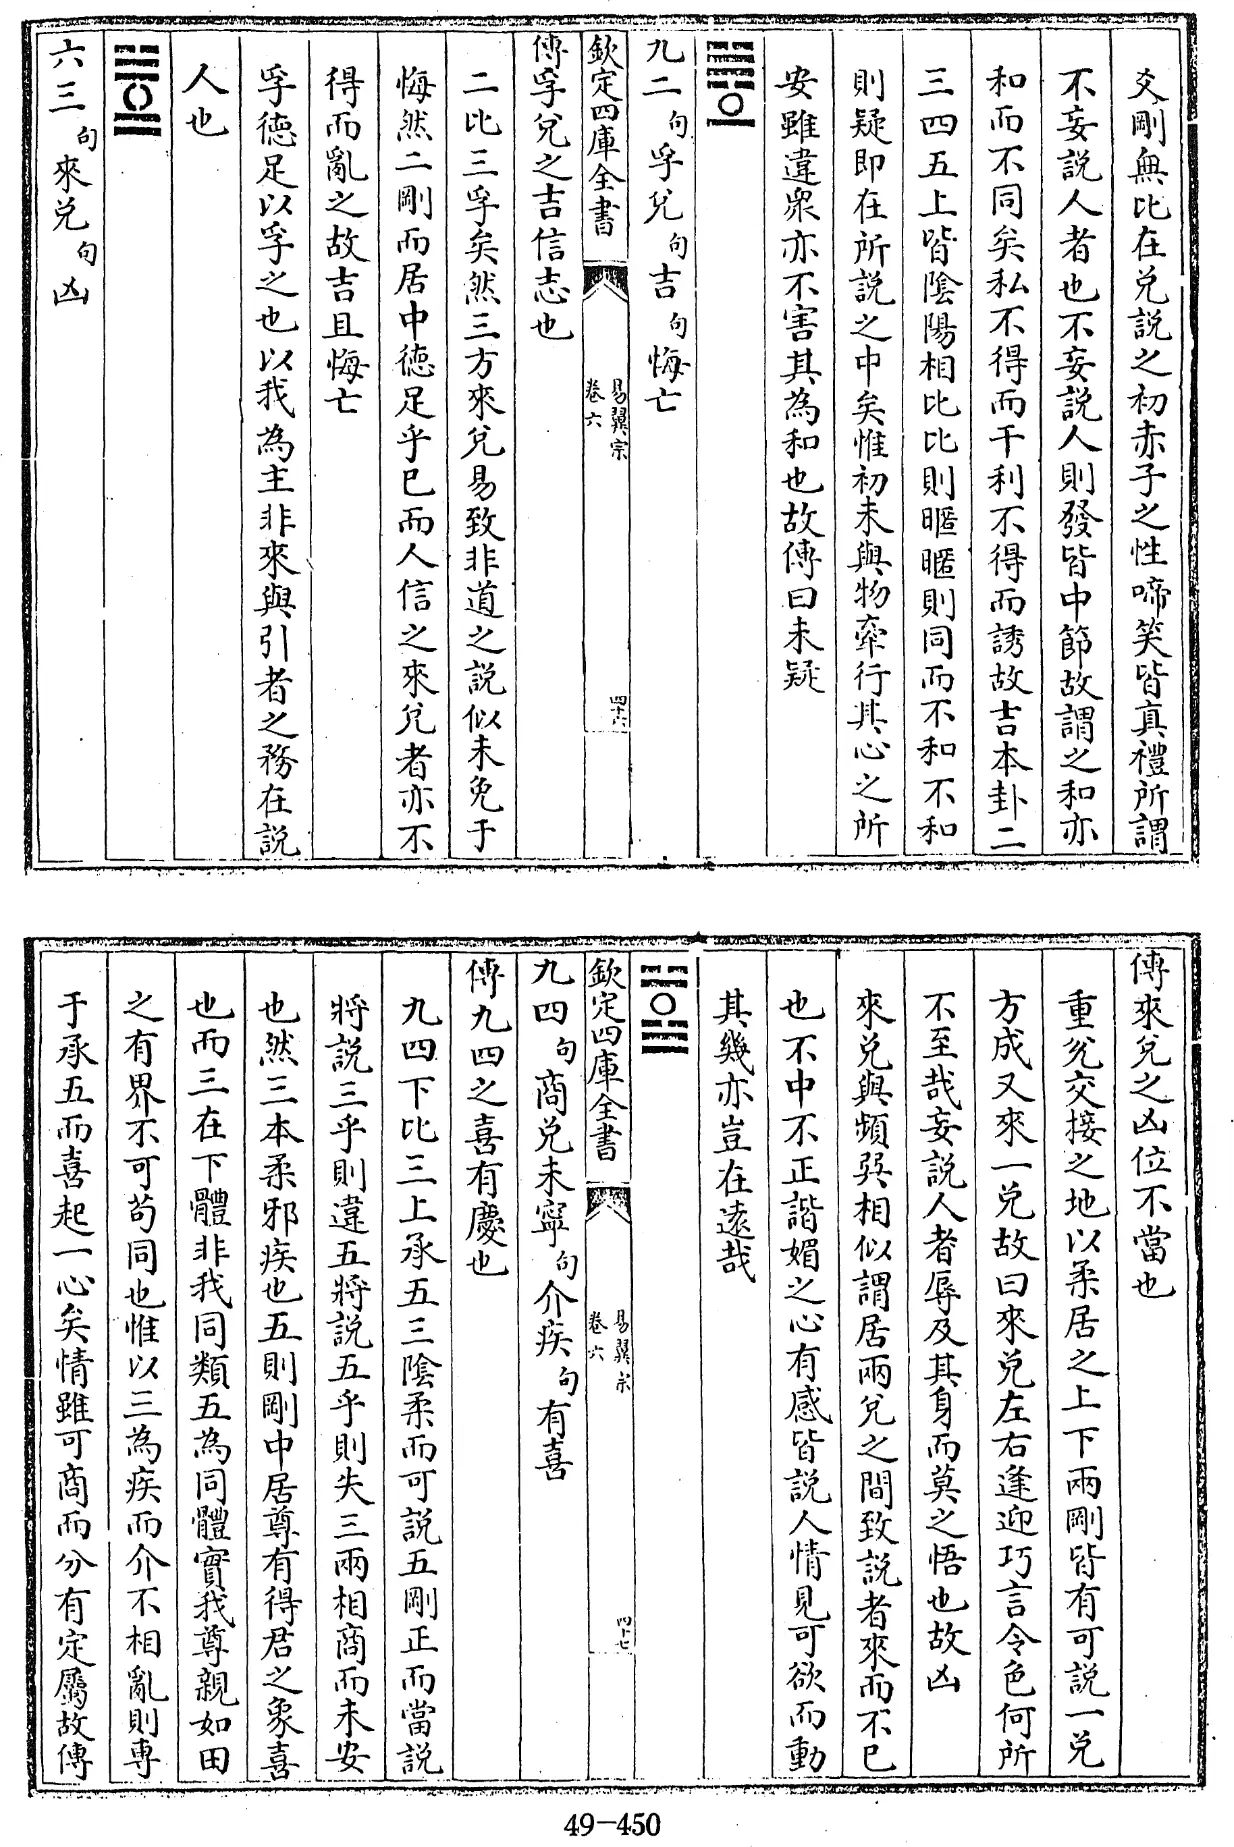 爻剛無比在兑説之初赤子之性啼笑皆真禮所謂
不妄説人者也不妄説人則發皆中節故謂之和亦
和而不同矣私不得而干利不得而誘故吉本卦二
三四五上皆陰陽相比比則暱暱則同而不和不和
則疑即在所説之中矣惟初未與物牽行其心之所
安雖違衆亦不害其為和也故傳曰未疑
九二句孚兑句吉句悔亡
欽定四庫全書
易翼宗
卷六
四十六
傳孚兑之吉信志也
二比三孚矣然三方來兑易致非道之説似未免于
悔然二剛而居中德足乎已而人信之來兑者亦不
得而亂之故吉且悔亡
孚德足以孚之也以我為主非來與引者之務在説
人也
六三句來兑句凶
傳來兑之凶位不當也
重兑交接之地以柔居之上下兩剛皆有可説一兑
方成又來一兑故曰來兑左右逢迎巧言令色何所
不至哉妄説人者辱及其身而莫之悟也故凶
來兑與頻巽相似謂居兩兑之間致説者來而不已
也不中不正諧媚之心有感皆説人情見可欲而動
其幾亦豈在遠哉
欽定四庫全書
易翼宗
卷六
四十七
九四句商兑未寧句介疾句有喜
傳九四之喜有慶也
九四下比三上承五三陰柔而可説五剛正而當説
將説三乎則違五將説五乎則失三兩相商而未安
也然三本柔邪疾也五則剛中居尊有得君之象喜
也而三在下體非我同類五為同體實我尊親如田
之有界不可苟同也惟以三為疾而介不相亂則專
于承五而喜起一心矣情雖可商而分有定屬故傳
49-450